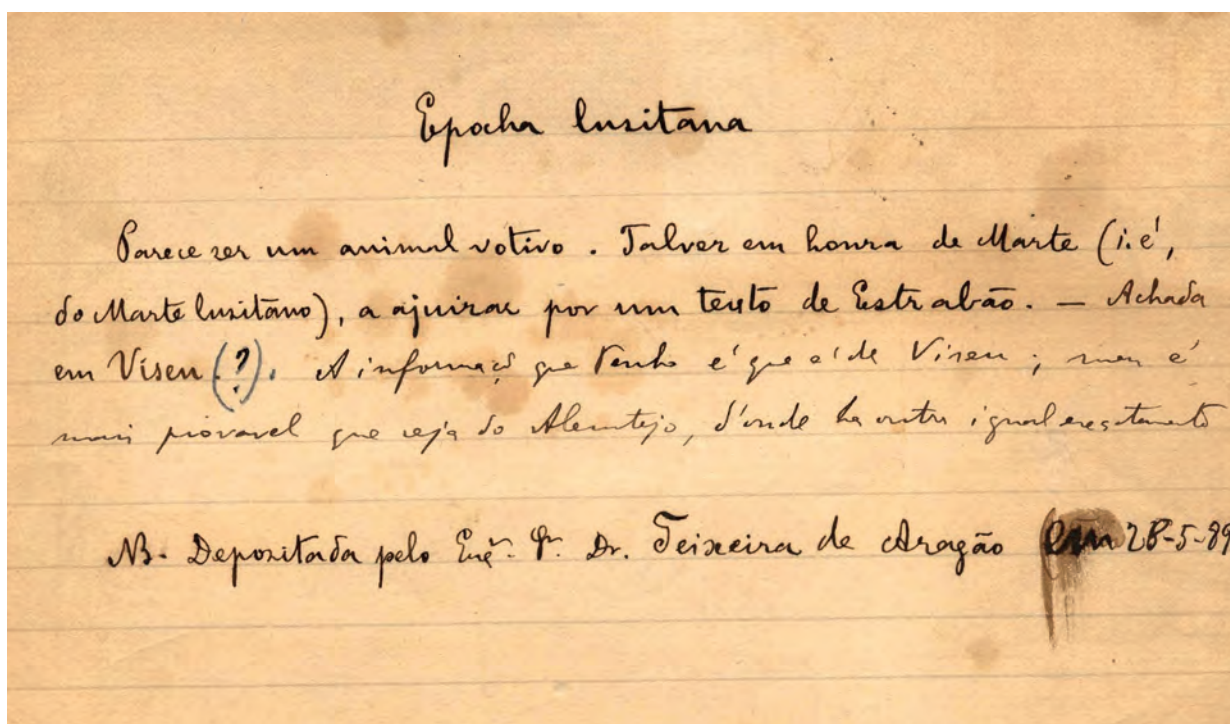 Epocha lusitana
Parece ser um animal votivo. Talvez em honra de Marte (i. é,
do Marte lusitano), a ajuizar por um texto de Estrabão. — Achada
em Viseu (?). A informaçõ que tenho é que é de Viseu; mas é
mais provavel que seja do Alemtejo, d'onde ha outra igual exactamente
NB. Depositada pelo Exº. Sr. Dr. Teixeira de Aragão em 28-5-89